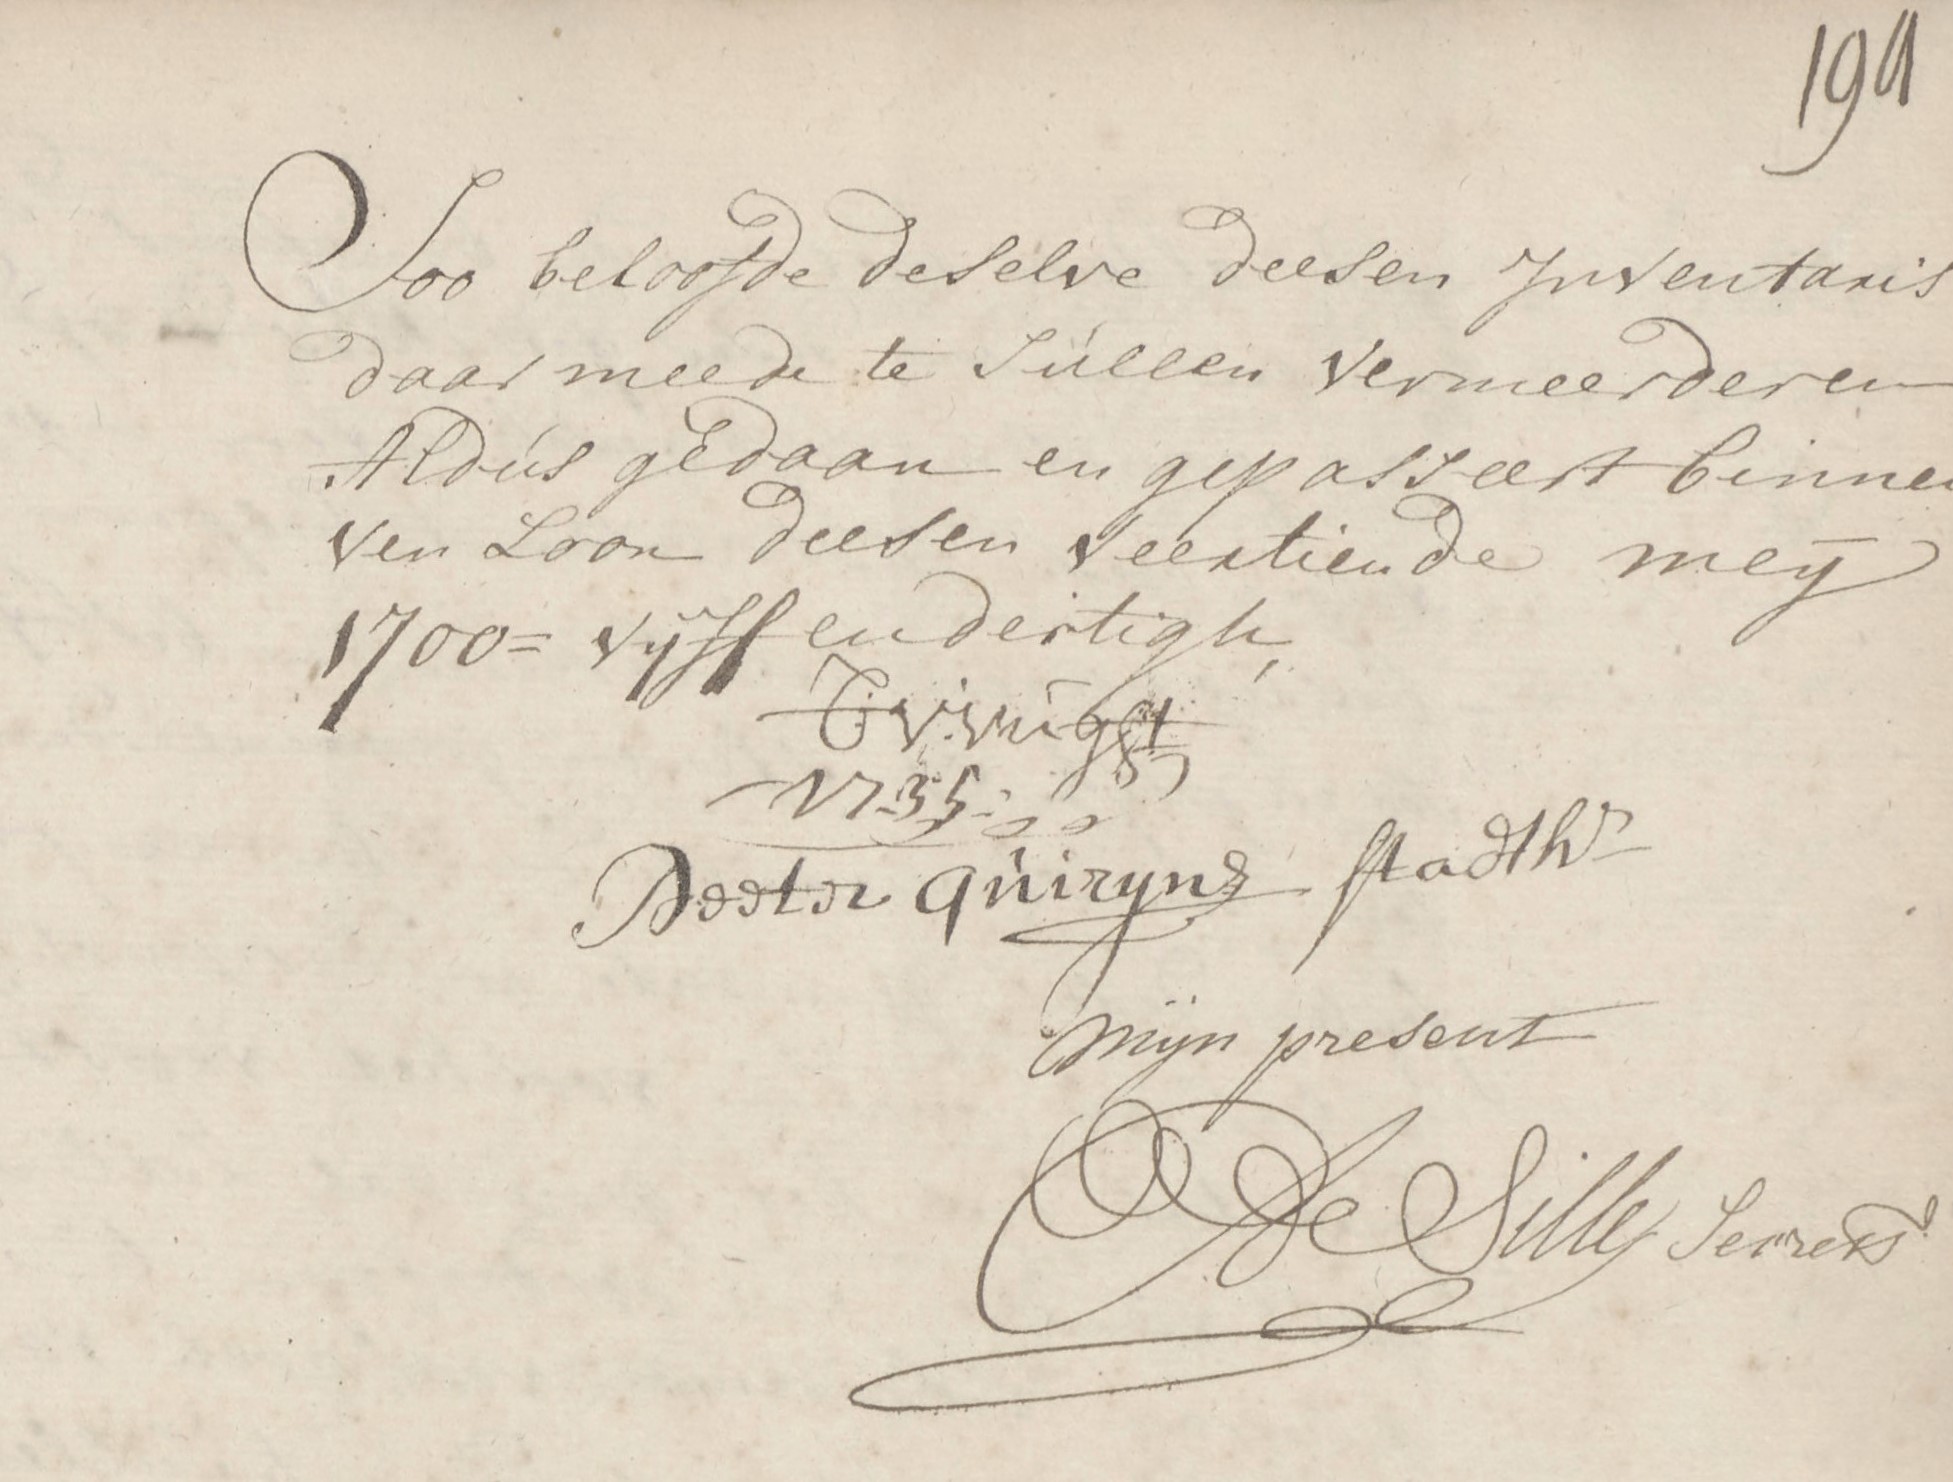 191
Soo beloofde deselve deesen Inventaris
daar meede te sullen vermeerderen
Aldus gedaan en gepasseert binnen
Ven Loon deesen veertiende meij
1700= vijff en dertigh,
1735
Peeter quirynz stadthr
Mijn present
De Silly Secrets